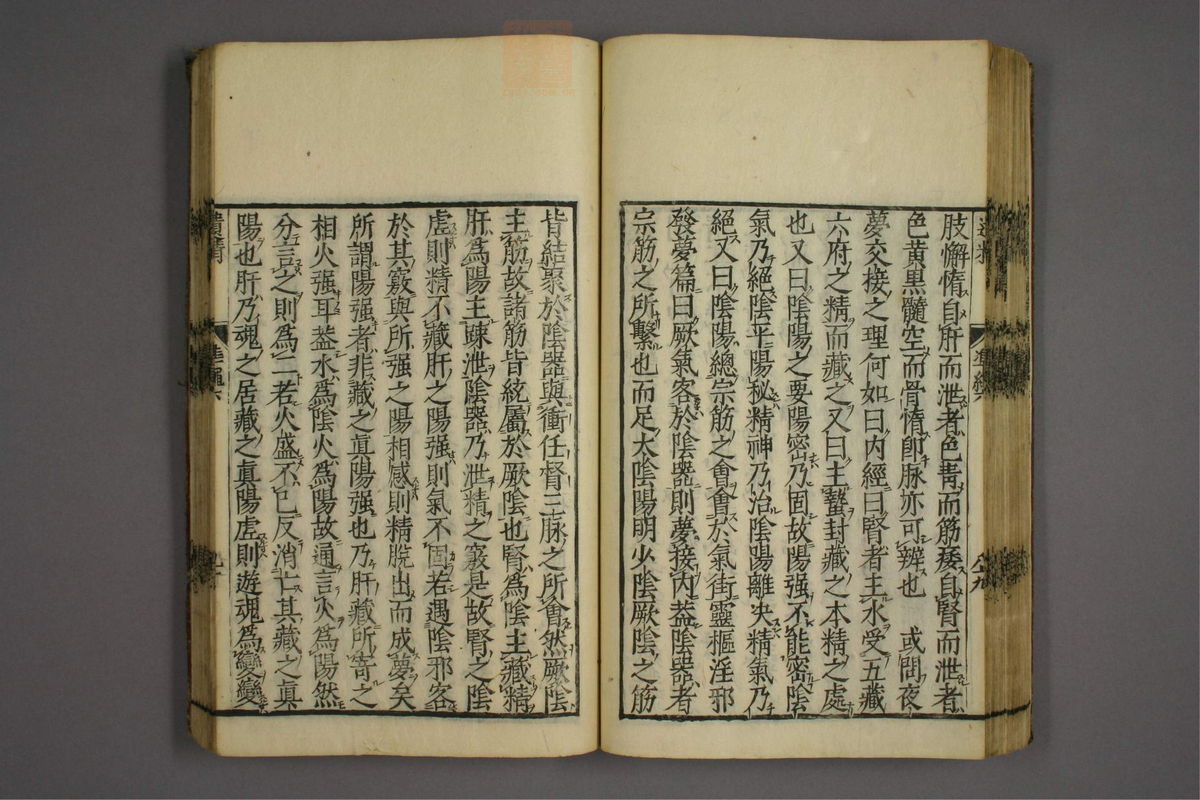 肢懈惰自肝而泄者色青而筋痿自腎而泄者
色黃黒髓空而骨惰卽脉亦可辨也　或問夜
夢交接之理何如曰內經曰腎者主水受五藏
六府之精而藏之又曰主蟄封藏之本精之處
也又曰陰陽之要陽密乃固故陽强不能密陰
氣乃絕陰平陽秘精神乃治陰陽離决精氣乃
絕又曰陰陽總宗筋之會會於氣街靈樞淫邪
發夢篇曰厥氣客於陰器則夢接內葢陰器者
宗筋之所繫也而足太陰陽明少陰厥陰之筋
皆結聚於陰器與衝任督三脉之所會然厥陰
主筋故諸筋皆統屬於厥陰也腎爲陰主藏精
肝爲陽主疎泄陰器乃泄精之竅是故腎之陰
虛則精不藏肝之陽强則氣不固若遇陰邪客
於其竅與所强之陽相感則精脫出而成夢矣
所謂陽强者非藏之眞陽强也乃肝藏所寄之
相火强耳葢水爲陰火爲陽故通言火爲陽然
分言之則爲二若火盛不已反消亡其藏之眞
陽也肝乃魂之居藏之眞陽虛則遊魂爲變變